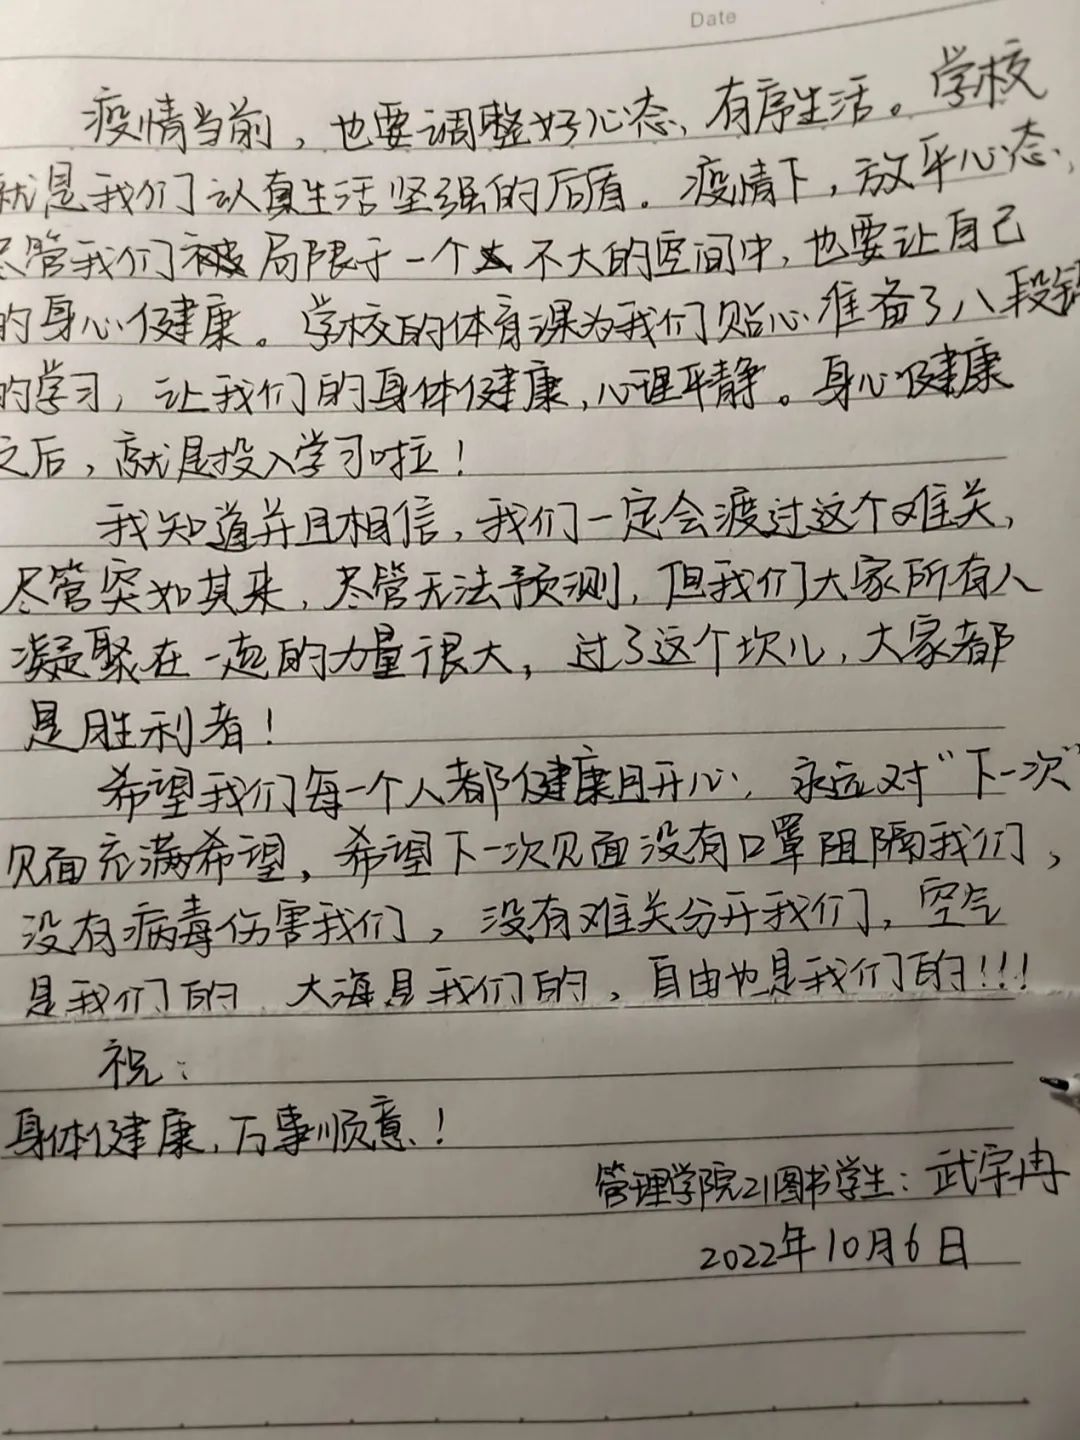 Date
疫情当前，也要调整好心态，有序生活。学校
就是我们认真生活坚强的后盾。疫情下，放平心态，
尽管我们被局限于一个不大的空间中，也要让自己
的身心健康。学校的体育课为我们贴心准备了八段锦
的学习，让我们的身体健康，心理平静。身心健康
之后，就是投入学习啦！
我知道并且相信，我们一定会渡过这个难关，
尽管突如其来，尽管无法预测，但我们大家所有人
凝聚在一起的力量很大，过了这个坎儿，大家都
是胜利者！
希望我们每一个人都健康且开心，永远对“下一次”
见面充满希望，希望下一次见面没有口罩阻隔我们，
没有病毒伤害我们，没有难关分开我们，空气
是我们的 大海是我们的，自由也是我们的!!!
祝：
身体健康，万事顺意！
管理学院21图书学生：武宇冉
2022年10月6日